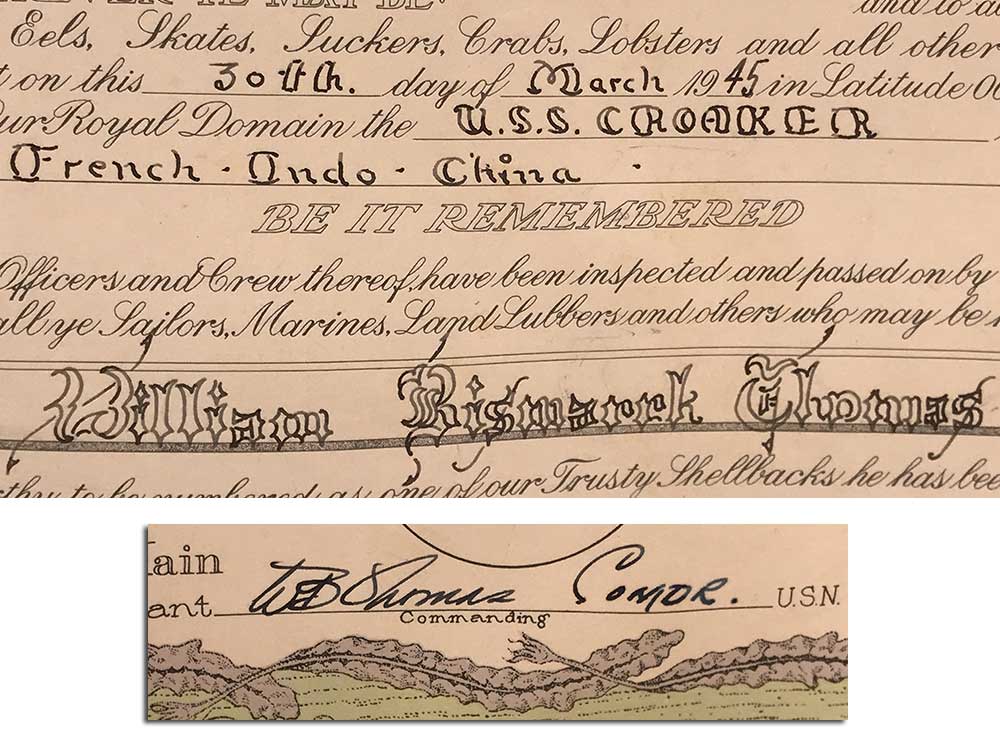 and to a
Eels, Skates, Suckers, Crabs, Lobsters and all other
t on this 30th. day of March 1945 in Latitude 00
Our Royal Domain the U.S.S. CROAKER
French - Indo - China
BE IT REMEMBERED
Officers and Crew thereof, have been inspected and passed on by
all ye Sailors, Marines, Land Lubbers and others who may be
William Bismarck Thomas
thy to be numbered as one of our Trusty Shellbacks he has bee
ain
ant WB Thomas Comdr. U.S.N.
Commanding